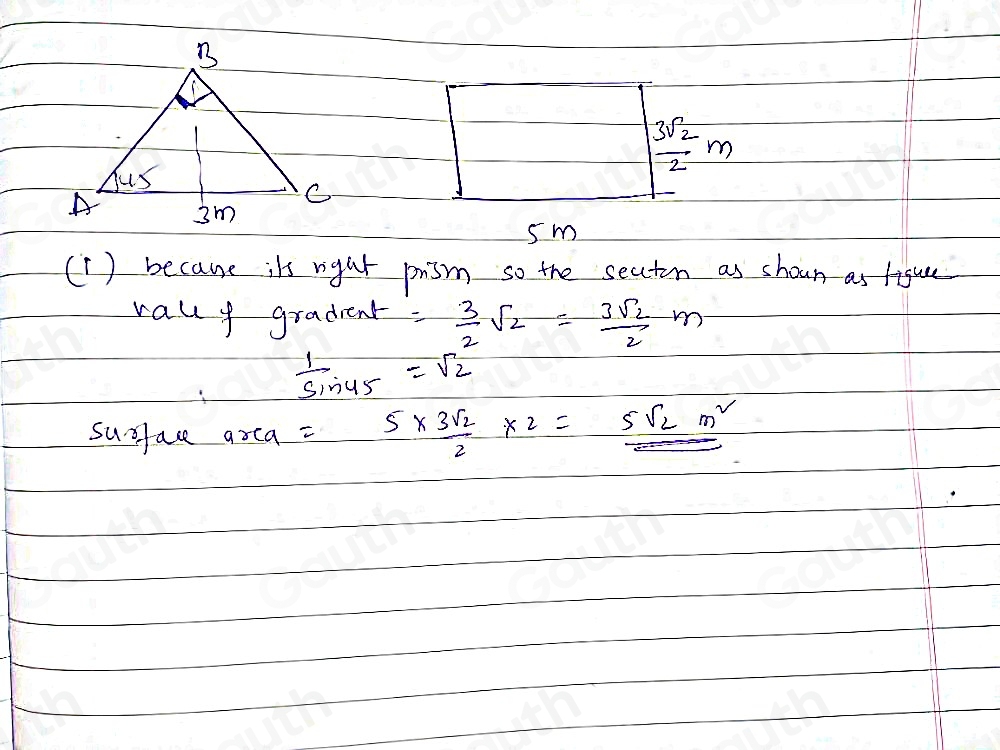 B
45
A
C
3m
3√2/2 m
5 m
(I) because its right prism so the as shown as figure
of gradient = 3/2 √2 = 3√2/2 m
1/sin45 = √2
surface area = 5 × 3√2/2 × 2 = 5√2 m²
Gauth